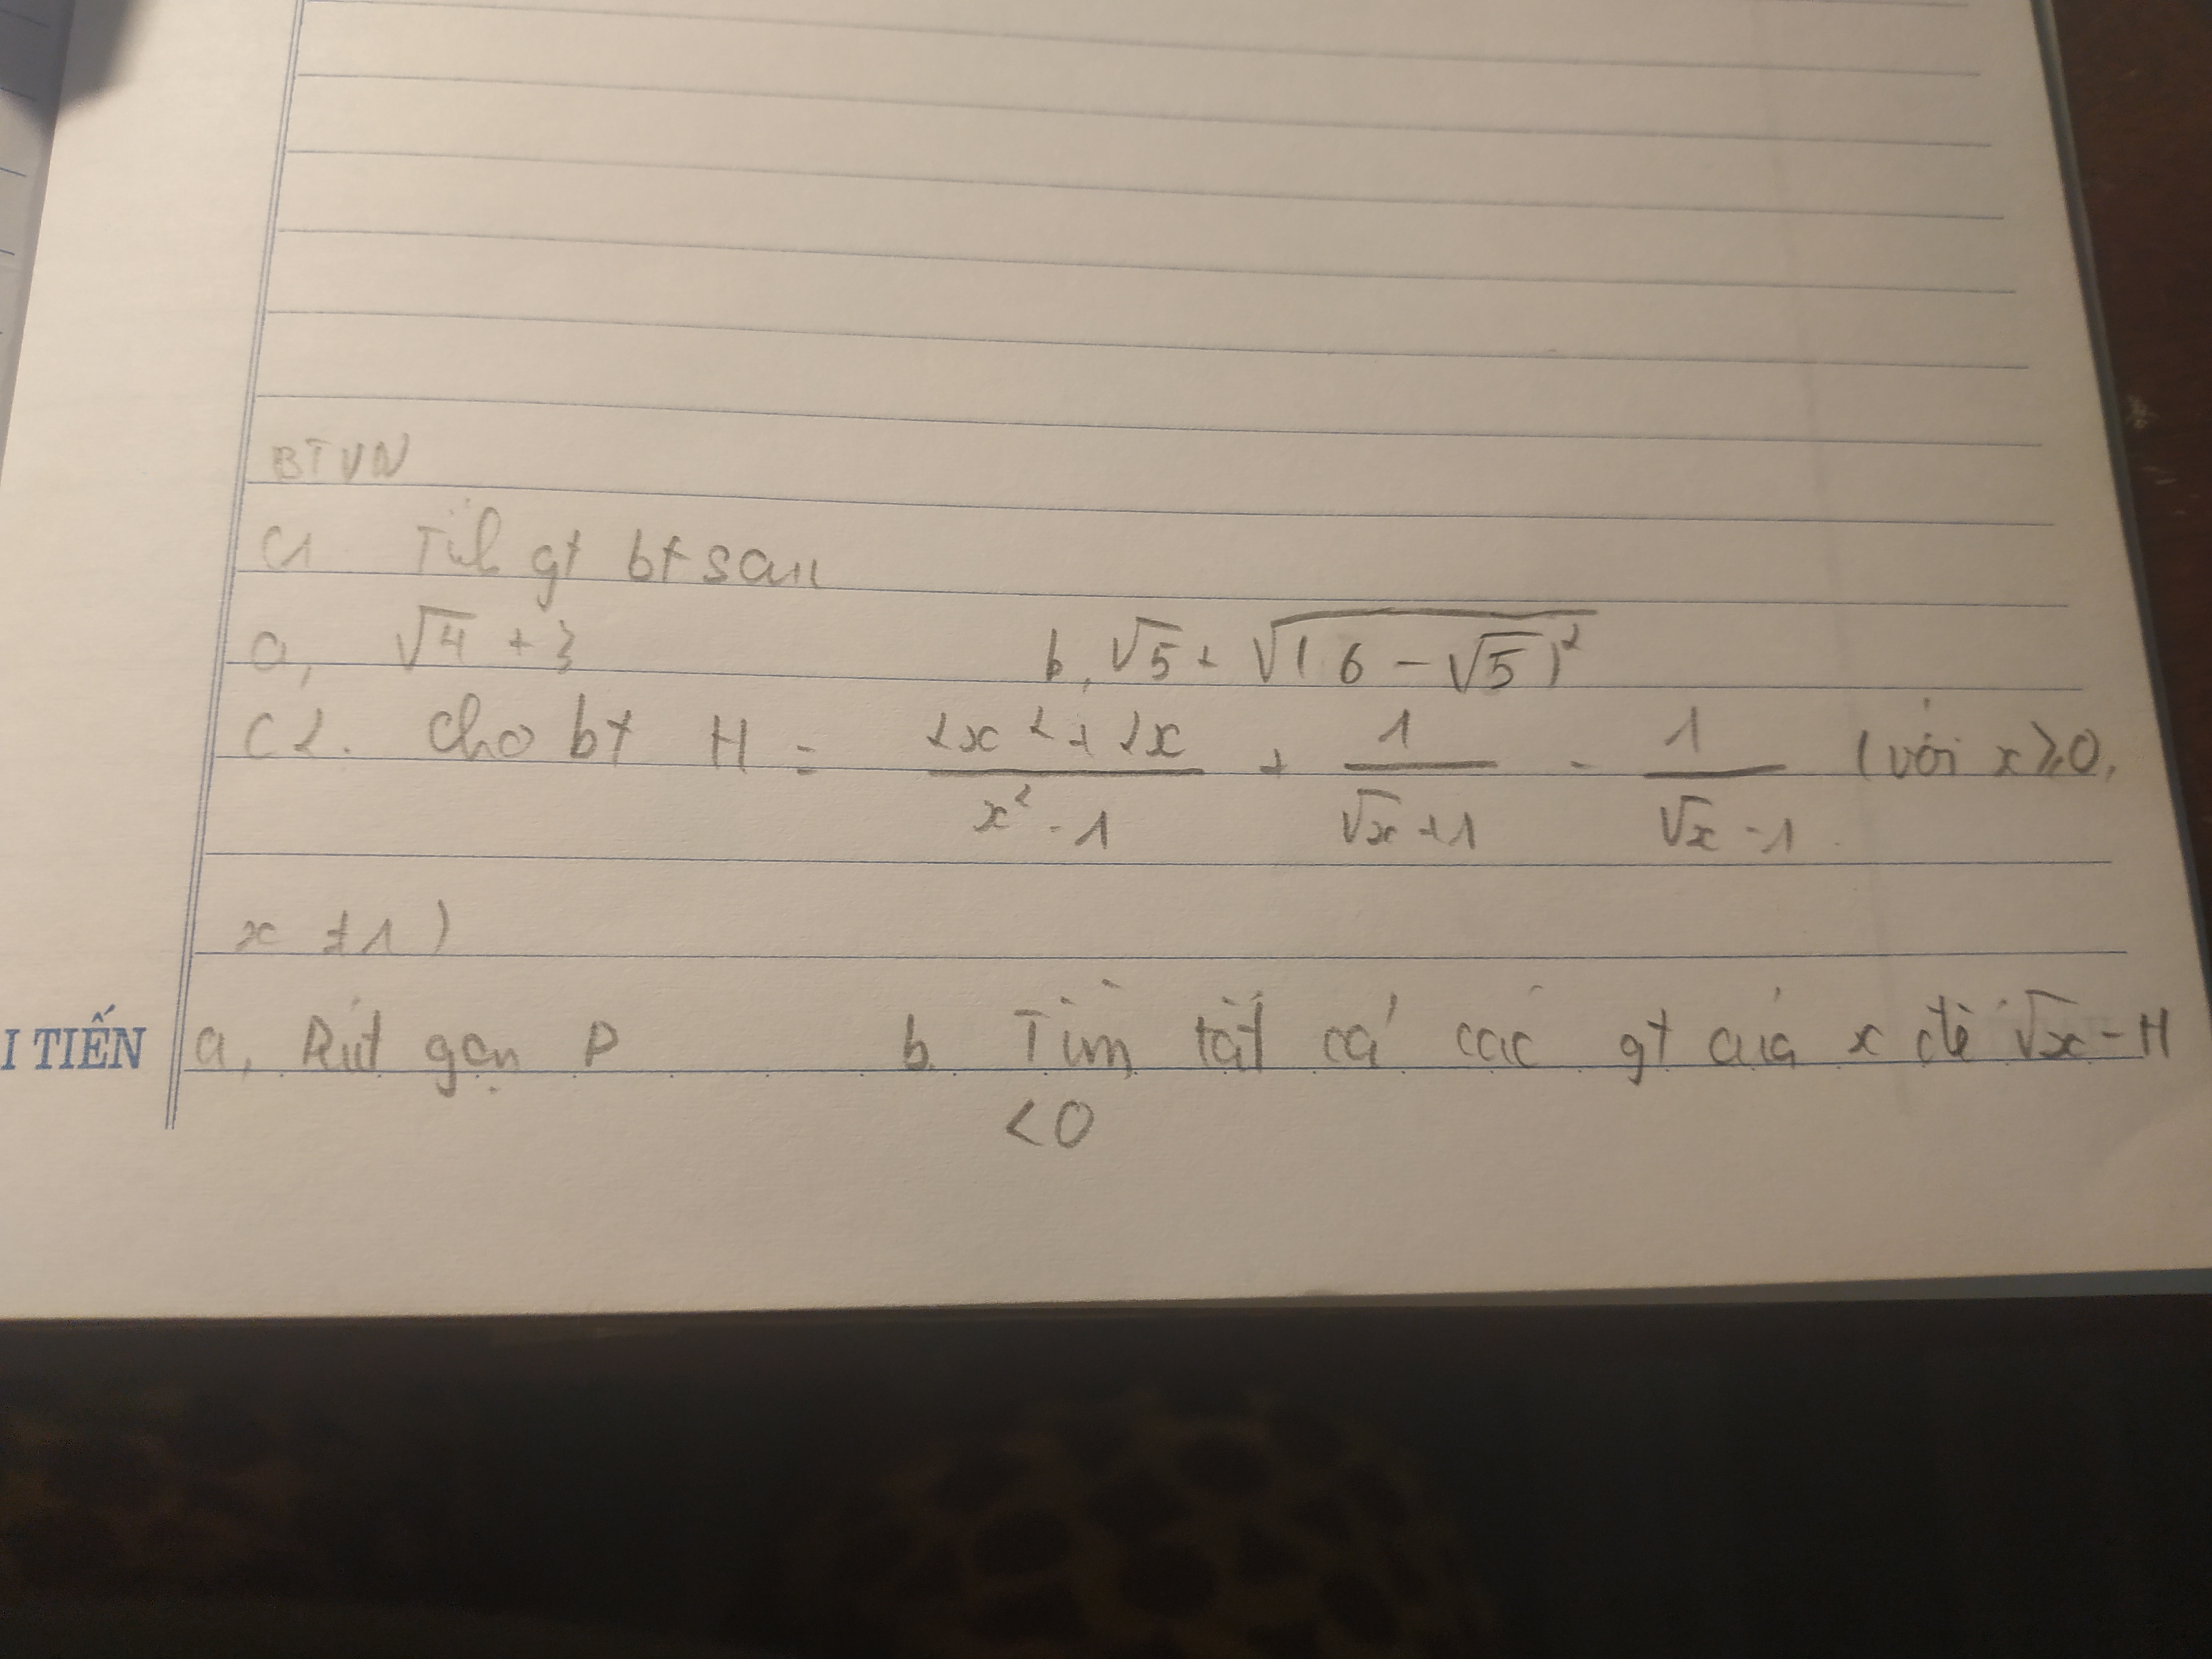 BTVN
C1. Tính gt bt sau
a, √4 + 3 b, √5 + √(6 - √5)²
C2. Cho bt H = (2x² + 2x)/(x² - 1) + 1/(√x + 1) - 1/(√x - 1) (với x ≥ 0,
x ≠ 1)
I TIẾN
a, Rút gọn P b. Tìm tất cả các gt của x để √x - H
< 0